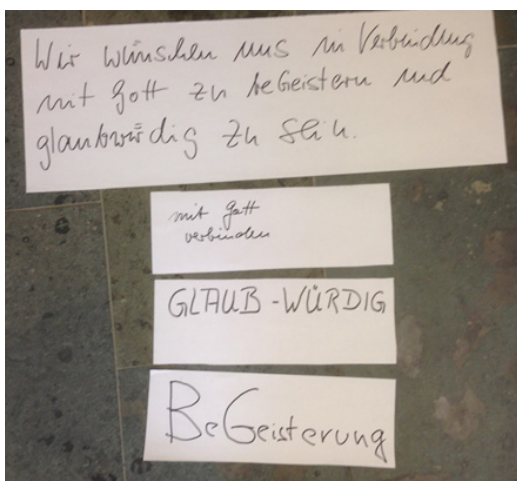 Wir wünschen uns in Verbindung
mit Gott zu beGeistern und
glaubwürdig zu sein.
mit Gott
verbinden
GLAUB-WÜRDIG
BeGeisterung